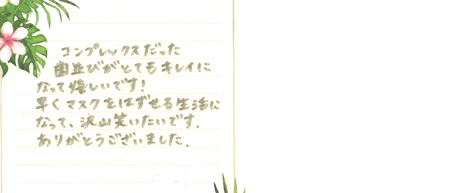 コンプレックスだった
歯並びがとてもキレイに
なって嬉しいです!
早くマスクをはずせる生活に
なって、沢山笑いたいです.
ありがとうございました.